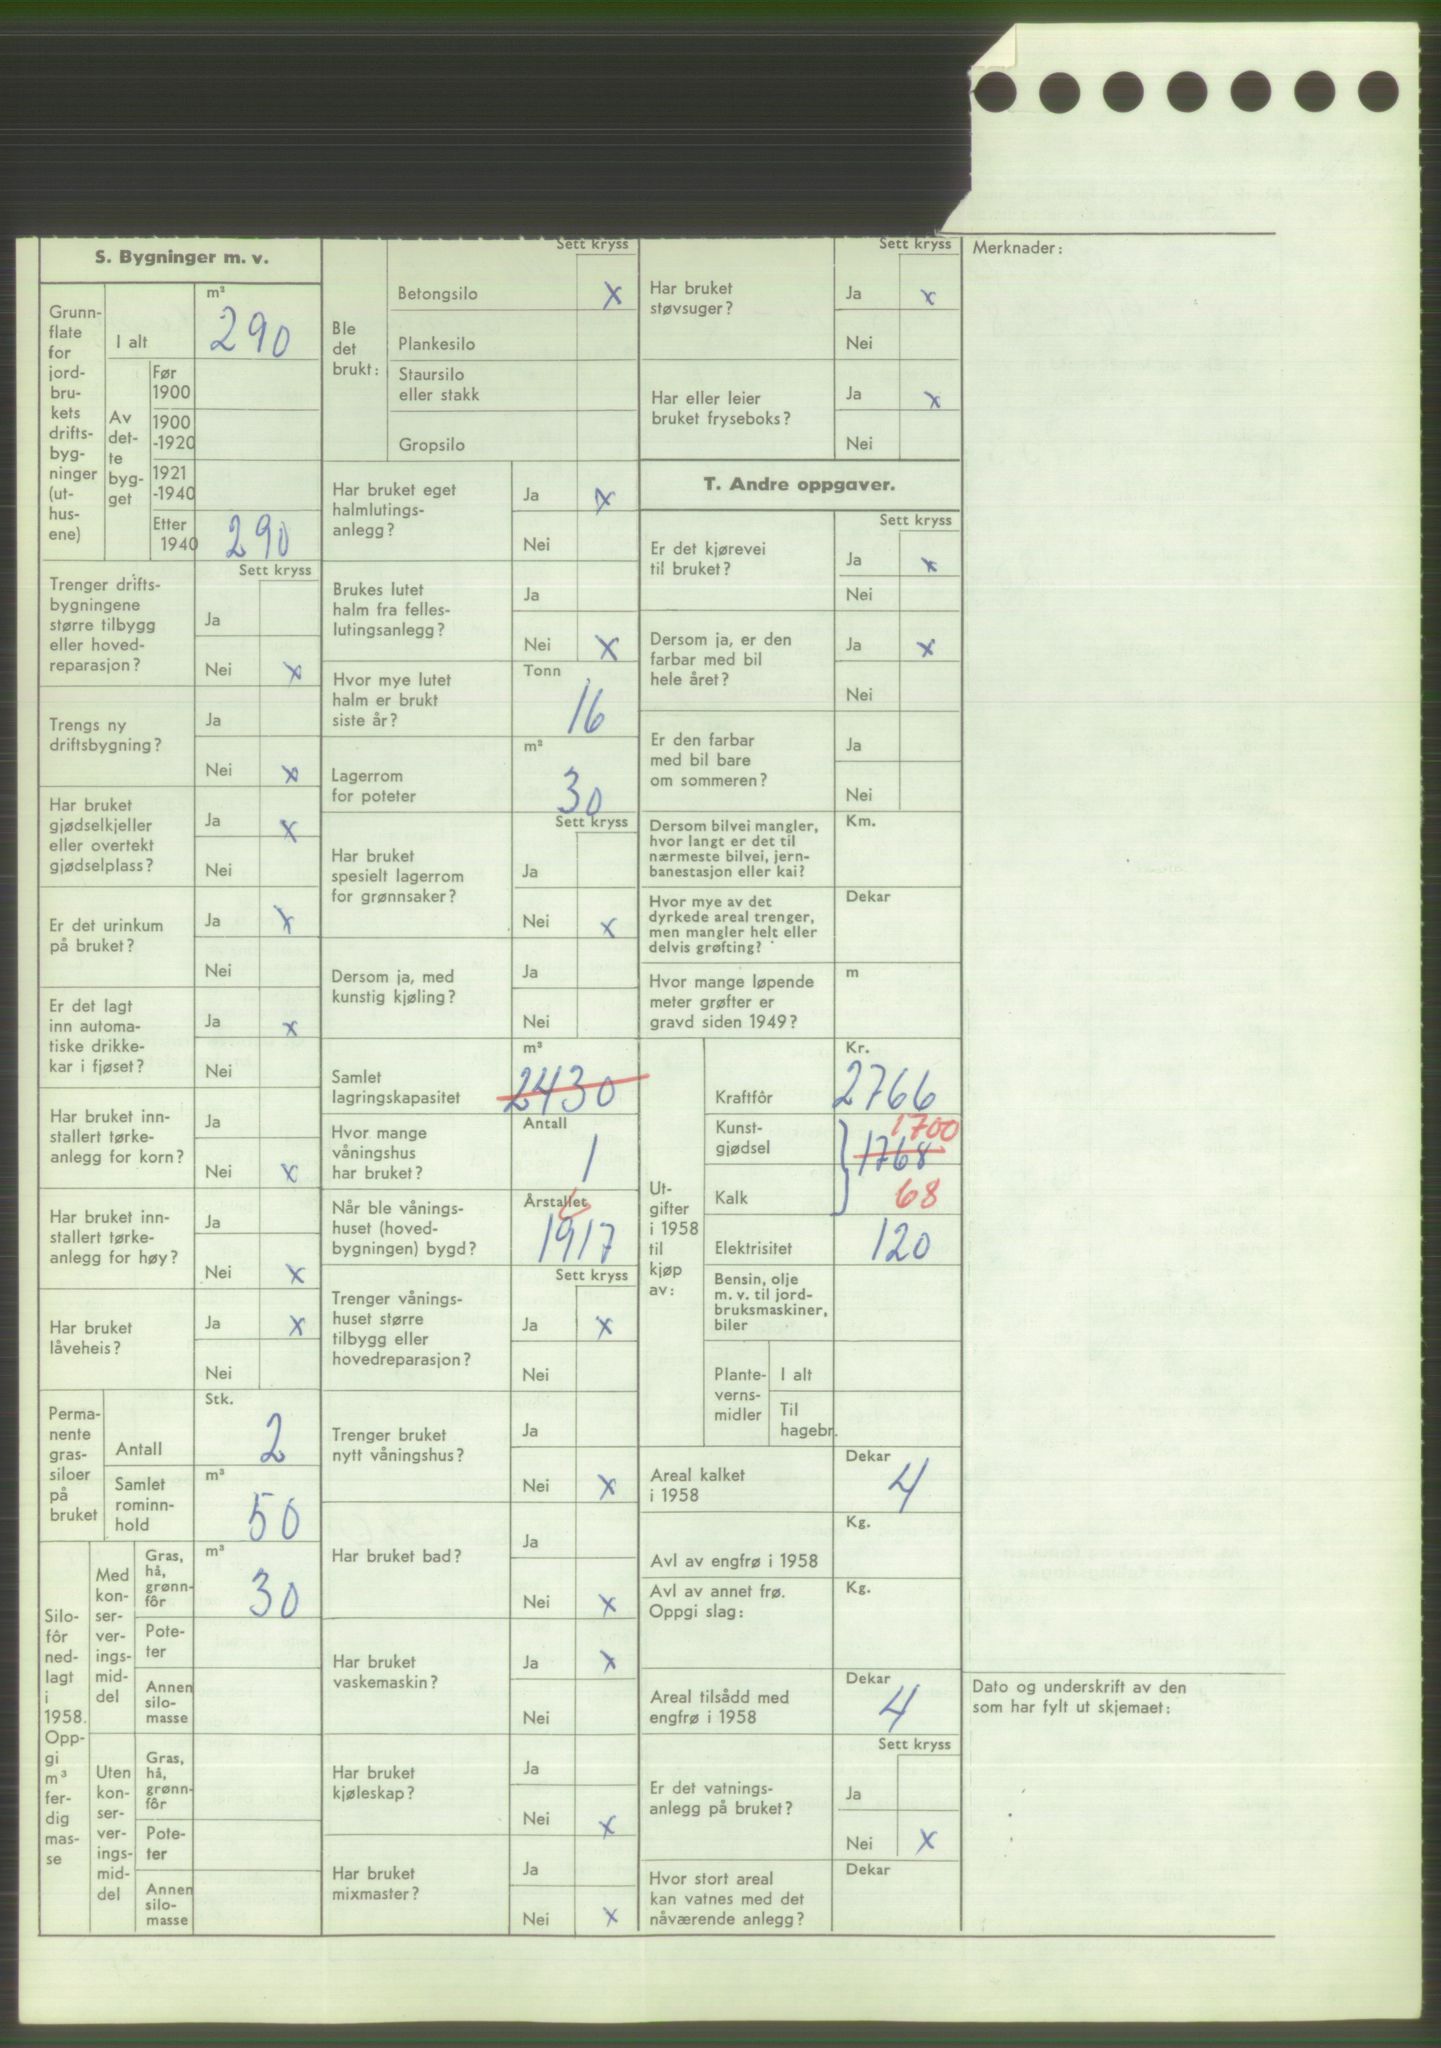 S. Bygninger m. v.
Grunn-
flate
for
jord-
bru-
kets
drifts-
byg-
ninger
(ut-
hus-
ene)
m²
I alt
290
Av
det-
te
byg-
get
Før
1900
1900
-1920
1921
-1940
Etter
1940
290
Sett kryss
Trenger drifts-
bygningene
større tilbygg
eller hoved-
reparasjon?
Ja
Nei x
Trengs ny
driftsbygning?
Ja
Nei x
Har bruket
gjødselkjeller
eller overtekt
gjødselplass?
Ja x
Nei
Er det urinkum
på bruket?
Ja x
Nei
Er det lagt
inn automa-
tiske drikke-
kar i fjøset?
Ja x
Nei
Har bruket inn-
stallert tørke-
anlegg for korn?
Ja
Nei x
Har bruket inn-
stallert tørke-
anlegg for høy?
Ja
Nei x
Har bruket
låveheis?
Ja x
Nei
Perma-
nente
gras-
siloer
på
bruket
Stk.
Antall 2
m³
Samlet
rominn-
hold
50
Silo-
fôr
ned-
lagt
i
1958.
Opp-
gi
m³
fer-
dig
mas-
se
Med
kon-
ser-
ver-
ings-
mid-
del
Gras,
hå,
grønn-
fôr
m³
30
Pote-
ter
Annen
silo-
masse
Uten
kon-
ser-
ver-
ings-
mid-
del
Gras,
hå,
grønn-
fôr
Pote-
ter
Annen
silo-
masse
Sett kryss
Ble
det
brukt:
Betongsilo x
Plankesilo
Staursilo
eller stakk
Gropsilo
Har bruket eget
halmlutings-
anlegg?
Ja x
Nei
Brukes lutet
halm fra felles-
lutingsanlegg?
Ja
Nei x
Hvor mye lutet
halm er brukt
siste år?
Tonn
16
Lagerrom
for poteter
m²
30
Sett kryss
Har bruket
spesielt lagerrom
for grønnsaker?
Ja
Nei x
Dersom ja, med
kunstig kjøling?
Ja
Nei
Samlet
lagringskapasitet
m³
2430
Hvor mange
våningshus
har bruket?
Antall
1
Når ble vånings-
huset (hoved-
bygningen) bygd?
Årstallet
1917
Sett kryss
Trenger vånings-
huset større
tilbygg eller
hovedreparasjon?
Ja x
Nei
Trenger bruket
nytt våningshus?
Ja
Nei x
Har bruket bad?
Ja
Nei x
Har bruket
vaskemaskin?
Ja x
Nei
Har bruket
kjøleskap?
Ja
Nei x
Har bruket
mixmaster?
Ja
Nei x
Sett kryss
Har bruket
støvsuger?
Ja x
Nei
Har eller leier
bruket fryseboks?
Ja x
Nei
T. Andre oppgaver.
Sett kryss
Er det kjørevei
til bruket?
Ja x
Nei
Dersom ja, er den
farbar med bil
hele året?
Ja x
Nei
Er den farbar
med bil bare
om sommeren?
Ja
Nei
Dersom bilvei mangler,
hvor langt er det til
nærmeste bilvei, jern-
banestasjon eller kai?
Km.
Hvor mye av det
dyrkede areal trenger,
men mangler helt eller
delvis grøfting?
Dekar
Hvor mange løpende
meter grøfter er
gravd siden 1949?
m
Ut-
gifter
i 1958
til
kjøp
av:
Kr.
Kraftfôr 2766
Kunst-
gjødsel
1700
1768
Kalk 68
Elektrisitet 120
Bensin, olje
m. v. til jord-
bruksmaskiner,
biler
Plante-
verns-
midler
I alt
Til
hagebr.
Areal kalket
i 1958
Dekar
4
Avl av engfrø i 1958
Kg.
Avl av annet frø.
Oppgi slag:
Kg.
Areal tilsådd med
engfrø i 1958
Dekar
4
Sett kryss
Er det vatnings-
anlegg på bruket?
Ja
Nei x
Hvor stort areal
kan vatnes med det
nåværende anlegg?
Dekar
Merknader:
Dato og underskrift av den
som har fylt ut skjemaet: